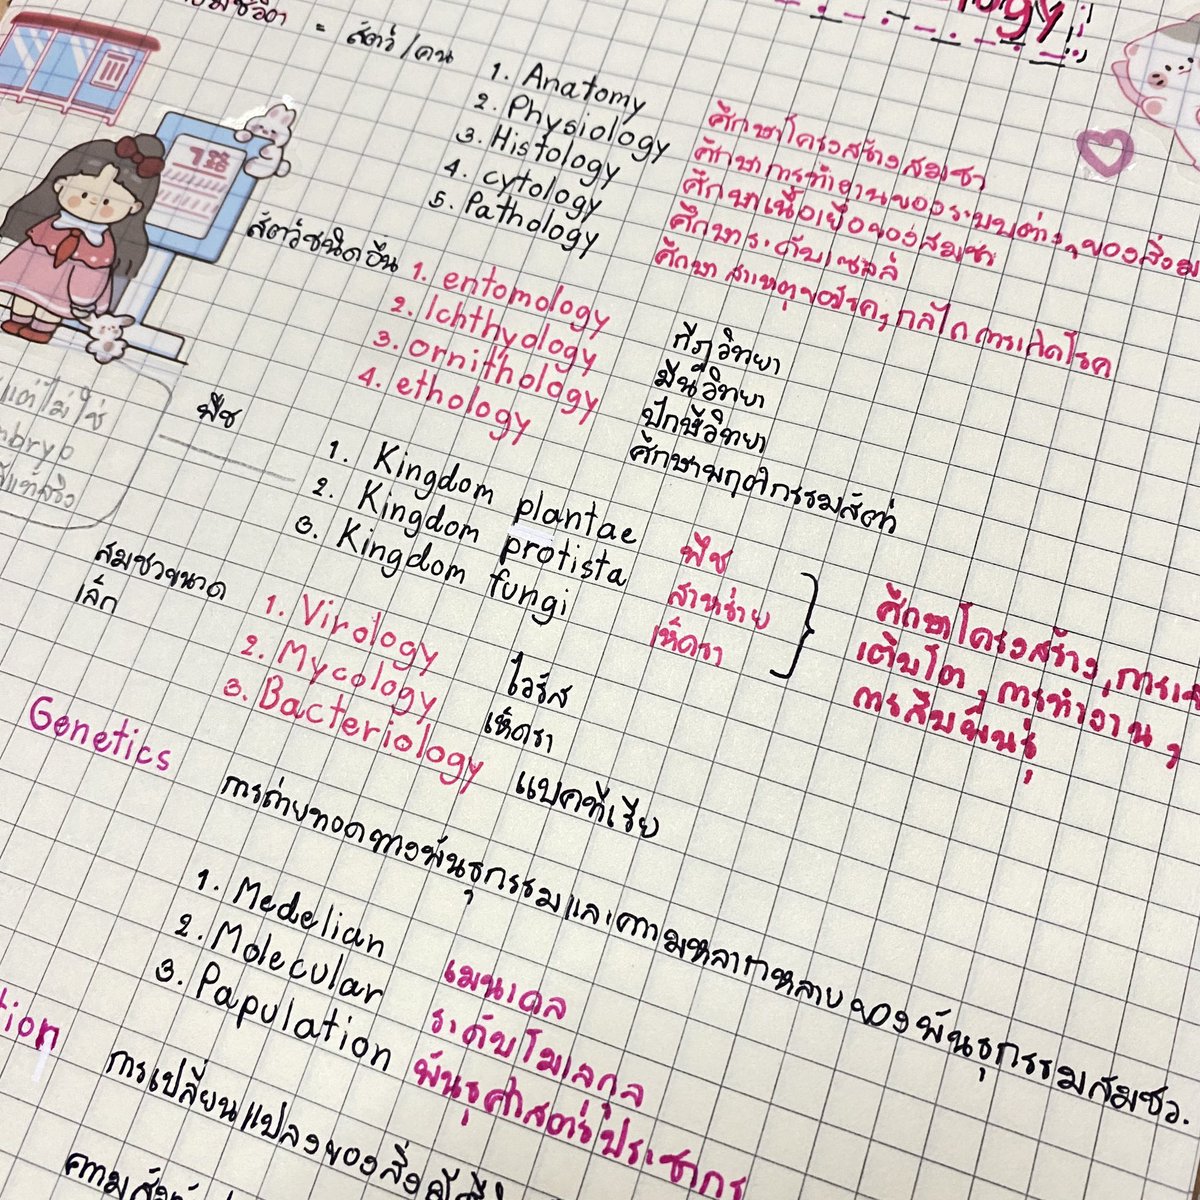 = สัตว์/คน
1. Anatomy ศึกษาโครงสร้างสมชว
2. Physiology ศึกษาการทำงานของระบบต่างๆของสิ่งม
3. Histology ศึกษาเนื้อเยื่อของสมชว
4. cytology ศึกษาระดับเซลล์
5. Pathology ศึกษาสาเหตุของโรค, กลไกการเกิดโรค
สัตว์ชนิดอื่น
1. entomology กีฏวิทยา
2. Ichthyology มีนวิทยา
3. ornithology ปักษีวิทยา
4. ethology ศึกษาพฤติกรรมสัตว์
แต่ไม่ใช่
mbryo
พืช
1. Kingdom plantae พืช
2. Kingdom protista สาหร่าย
3. Kingdom fungi เห็ดรา
ศึกษาโครงสร้าง, การเจ
เติบโต, การทำงาน,
การสืบพันธุ์
สมชวขนาด
เล็ก
1. Virology ไวรัส
2. Mycology เห็ดรา
3. Bacteriology แบคทีเรีย
Genetics การถ่ายทอดทางพันธุกรรมและความหลากหลายของพันธุกรรมสมชว.
1. Medelian เมนเดล
2. Molecular ระดับโมเลกุล
3. Papulation พันธุศาสตร์ประชากร
tion การเปลี่ยนแปลงของสิ่งมีชี